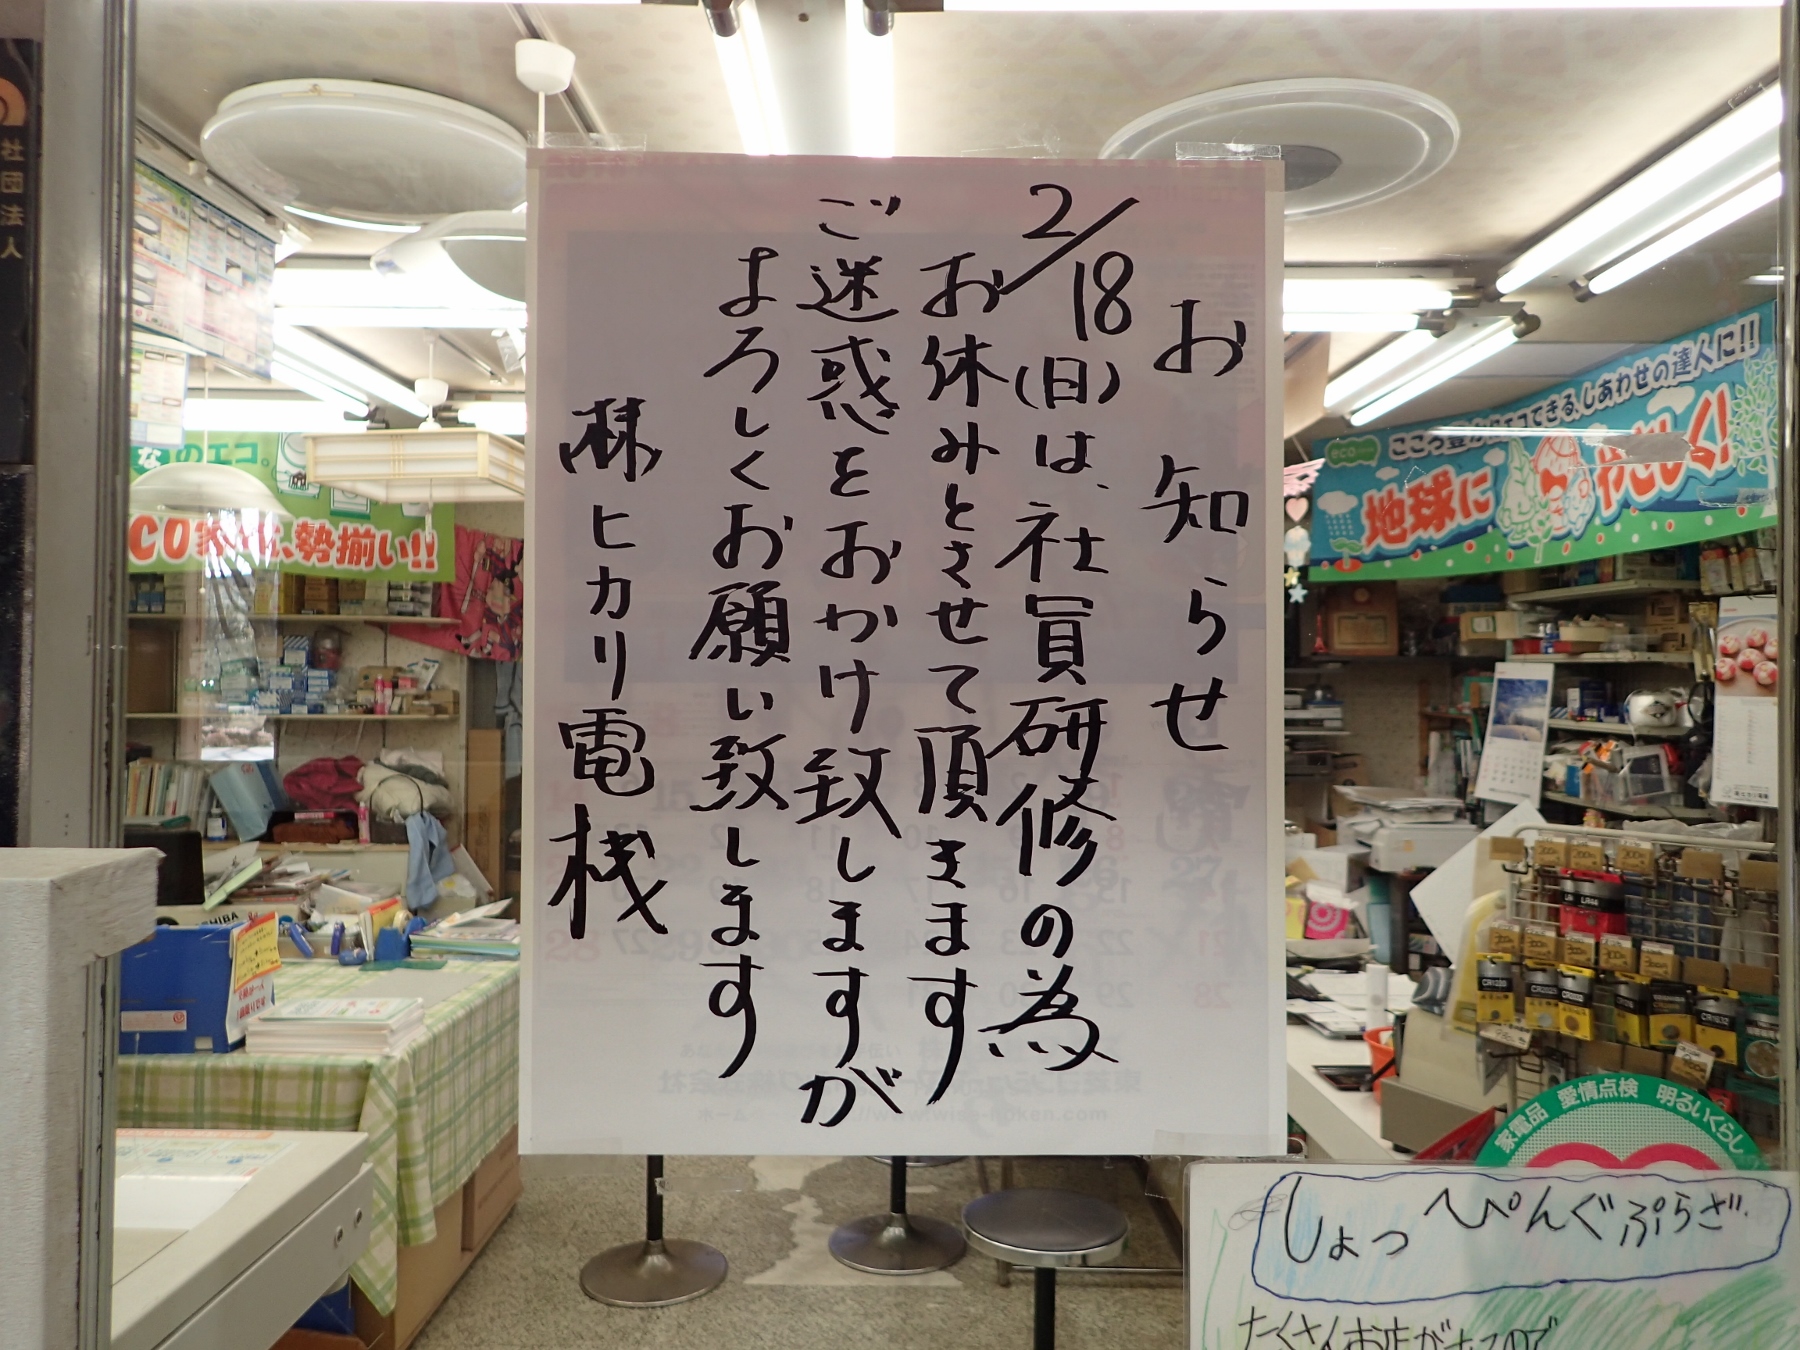 お知らせ
2/18(日)は、社員研修の為
お休みとさせて頂きます
ご迷惑をおかけ致しますが
よろしくお願い致します
㈱ヒカリ電機
社団法人
なのエコ。
勢揃い!!
eco
できる、しあわせの達人に!!
地球にやさしく!
家電品 愛情点検 明るいくらし
しょっぺんぐぷらざ
たくさんお店が
LR44
CR1632